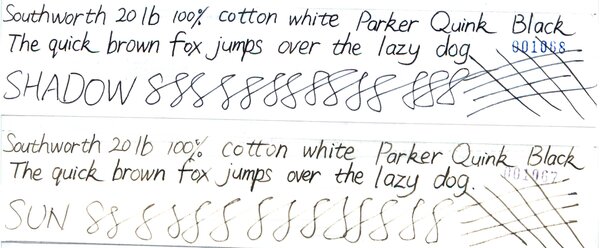 Southworth 20 lb 100% cotton white Parker Quink Black
The quick brown fox jumps over the lazy dog.
001068
SHADOW 888 8888888 888
Southworth 20 lb 100% cotton white Parker Quink Black
The quick brown fox jumps over the lazy dog.
001067
SUN 88 888 8888888